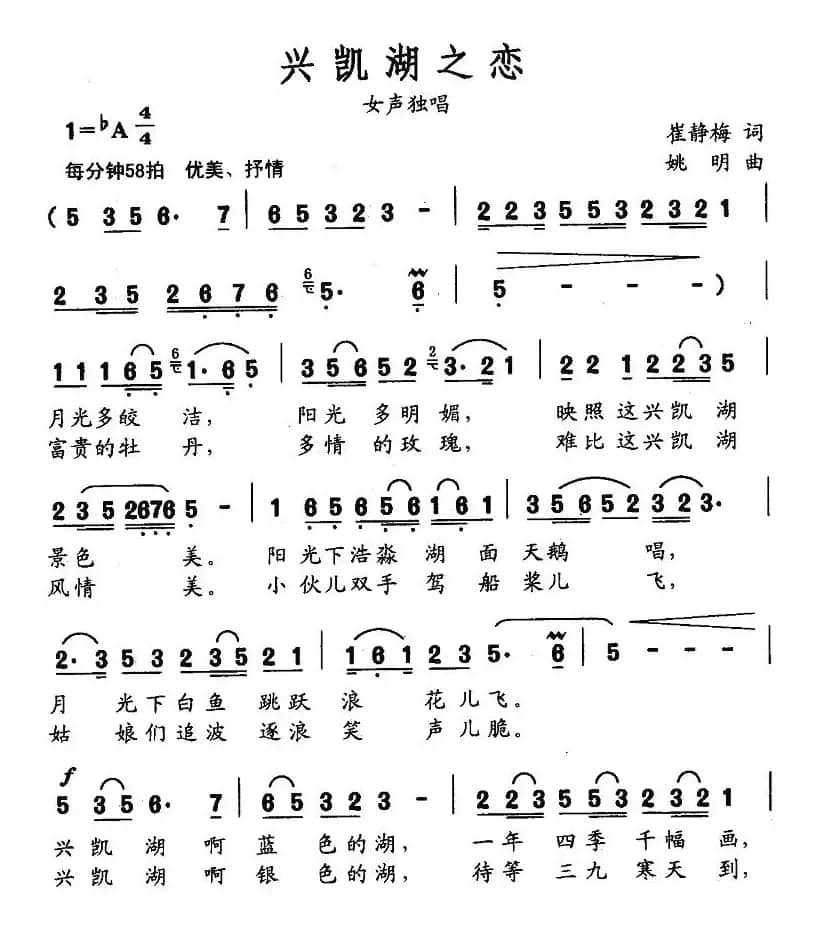 兴凯湖之恋
女声独唱
1=♭A 4/4
崔静梅 词
每分钟58拍 优美、抒情
姚 明 曲
(5 3 5 6· 7 | 6 5 3 2 3 - | 2 2 3 5 5 3 2 3 2 1 |
2 3 5 2 6 7 6 5· 6 | 5 - - - ) |
1 1 1 6 5 1· 6 5 | 3 5 6 5 2 3· 2 1 | 2 2 1 2 2 3 5 |
月光多皎 洁, 阳光 多明 媚, 映照 这兴凯 湖
富贵的牡 丹, 多情 的玫 瑰, 难比 这兴凯 湖
2 3 5 2 6 7 6 5 - | 1 6 5 6 5 6 1 6 1 | 3 5 6 5 2 3 2 3· |
景色 美。 阳光下浩淼 湖 面 天鹅 唱,
风情 美。 小伙儿双手 驾 船 桨儿 飞,
2· 3 5 3 2 3 5 2 1 | 1 6 1 2 3 5· 6 | 5 - - - |
月 光下白鱼 跳跃 浪 花儿飞。
姑 娘们追波 逐浪 笑 声儿脆。
f
5 3 5 6· 7 | 6 5 3 2 3 - | 2 2 3 5 5 3 2 3 2 1 |
兴凯 湖 啊 蓝 色的湖, 一年 四季 千幅 画,
兴凯 湖 啊 银 色的湖, 待等 三九 寒天 到,